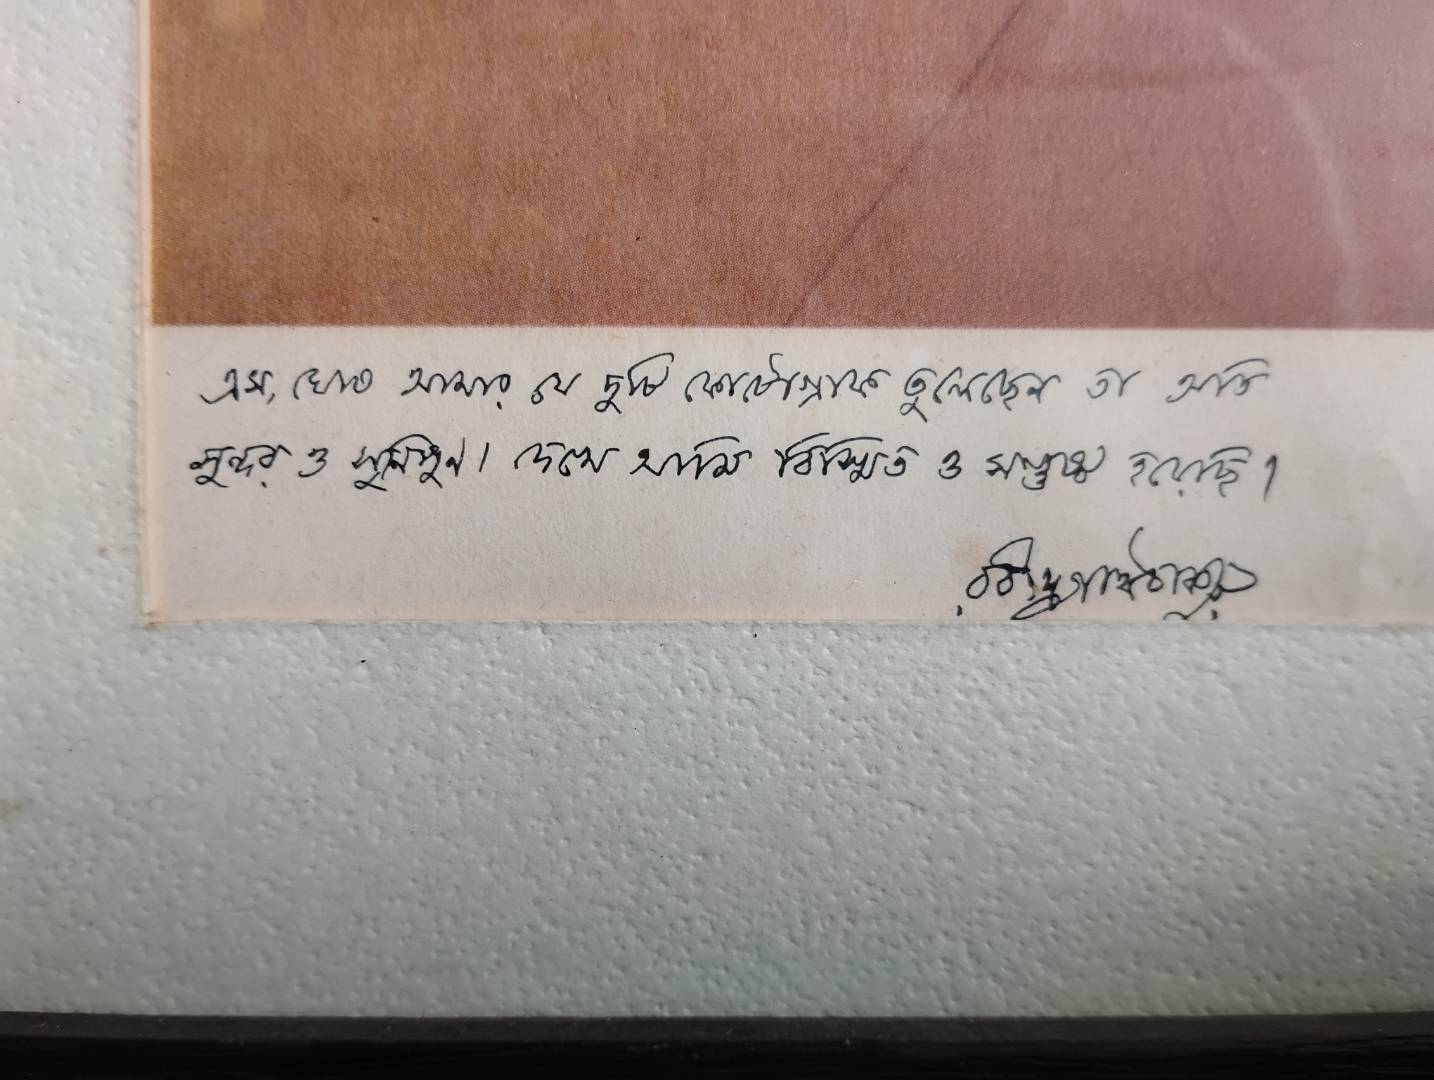 এস, ঘোষ আমার যে দুটি ফোটোগ্রাফ তুলেছেন তা অতি
সুন্দর ও সুনিপুণ। দেখে আমি বিস্মিত ও সন্তুষ্ট হয়েছি।
রবীন্দ্রনাথ ঠাকুর